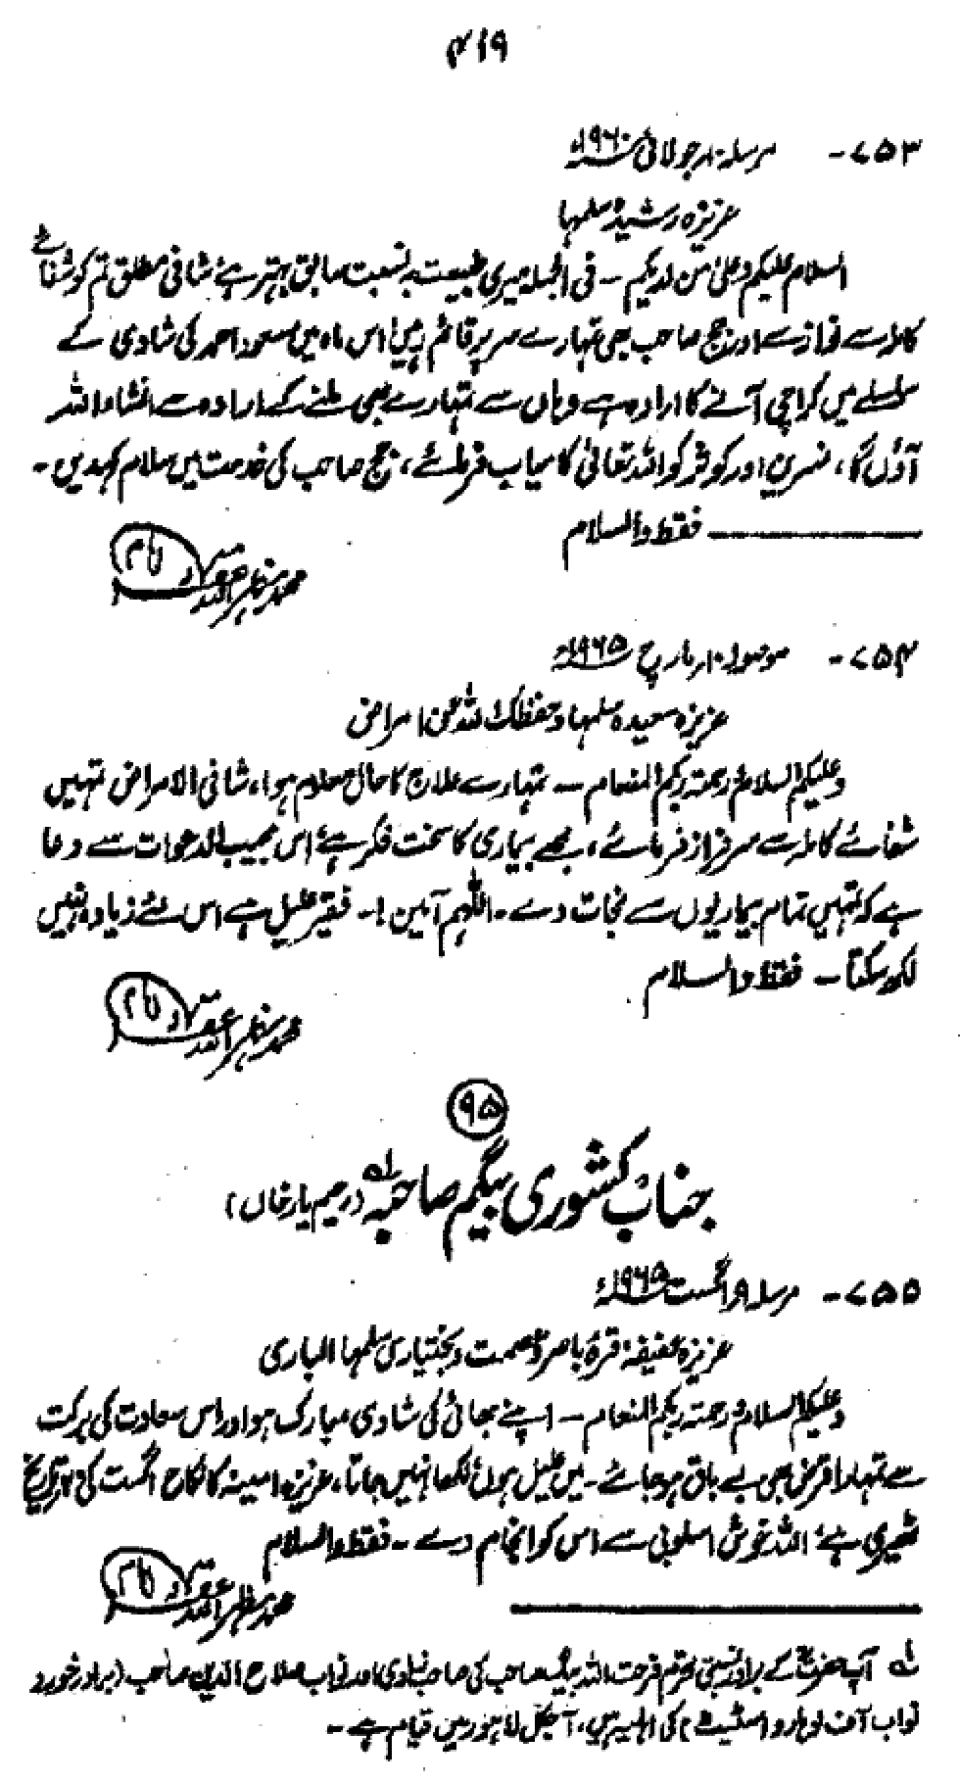 ۴۱۹
۷۵۳- مرسلہ ۱۰ر جولائی ۱۹۶۰ء
عزیزہ رشیدہ سلمہا
السلام علیکم وعلیٰ من لدیکم ۔ فی الجملہ میری طبیعت بہ نسبت سابق بہتر ہے شافی مطلق تم کو شفائے
کاملہ سے نوازے اور جج صاحب بھی تمہارے سر پر قائم رہیں اس ماہ میں مسعود احمد کی شادی کے
سلسلے میں کراچی آنے کا ارادہ ہے وہاں سے تمہارے بھی ملنے کے ارادہ سے انشاء اللہ
آؤں گا، نسرین اور کوثر کو اللہ تعالیٰ کامیاب فرمائے، جج صاحب کی خدمت میں سلام کہدیں۔
فقط والسلام
محمد مظہر اللہ غفرلہ امام
۷۵۴- موصولہ ۱۰ر مارچ ۱۹۶۵ء
عزیزہ سعیدہ سلمہا وحفظک اللہ عن امراض
وعلیکم السلام ورحمۃ ربکم المنعام ۔ تمہارے علاج کا حال معلوم ہوا، شافی الامراض تمہیں
شفائے کاملہ سے سرفراز فرمائے، مجھے بیماری کا سخت فکر ہے اس مجیب الدعوات سے دعا
ہے کہ تمہیں تمام بیماریوں سے نجات دے۔ اللہم آمین!۔ فقیر علیل ہے اس لئے زیادہ نہیں
لکھ سکتا۔ فقط والسلام
محمد مظہر اللہ غفرلہ امام
۹۵
جناب کشوری بیگم صاحبہ لہ (رحیم یار خاں)
۷۵۵- مرسلہ ۹ر اگست ۱۹۶۵ء
عزیزہ عفیفہ قرۃ باصرہ عصمت و بختیاری سلمہا الباری
وعلیکم السلام ورحمۃ ربکم المنعام ۔ اپنے بھائی کی شادی مبارک ہو اور اس سعادت کی برکت
سے تمہارا قرض بھی بے باق ہو جائے۔ میں علیل ہوں لکھا نہیں جاتا، عزیزہ امینہ کا نکاح اگست کی تاریخ
ٹھیری ہے اللہ خوش اسلوبی سے اس کو انجام دے۔ فقط والسلام
محمد مظہر اللہ غفرلہ امام
لہ آپ حضرت کے برادر نسبتی محترم فرحت اللہ بیگ صاحب کی صاحبزادی اور نواب صلاح الدین صاحب (برادر خورد
نواب آف لوہارو اسٹیٹ) کی اہلیہ ہیں، آجکل لاہور میں قیام ہے۔